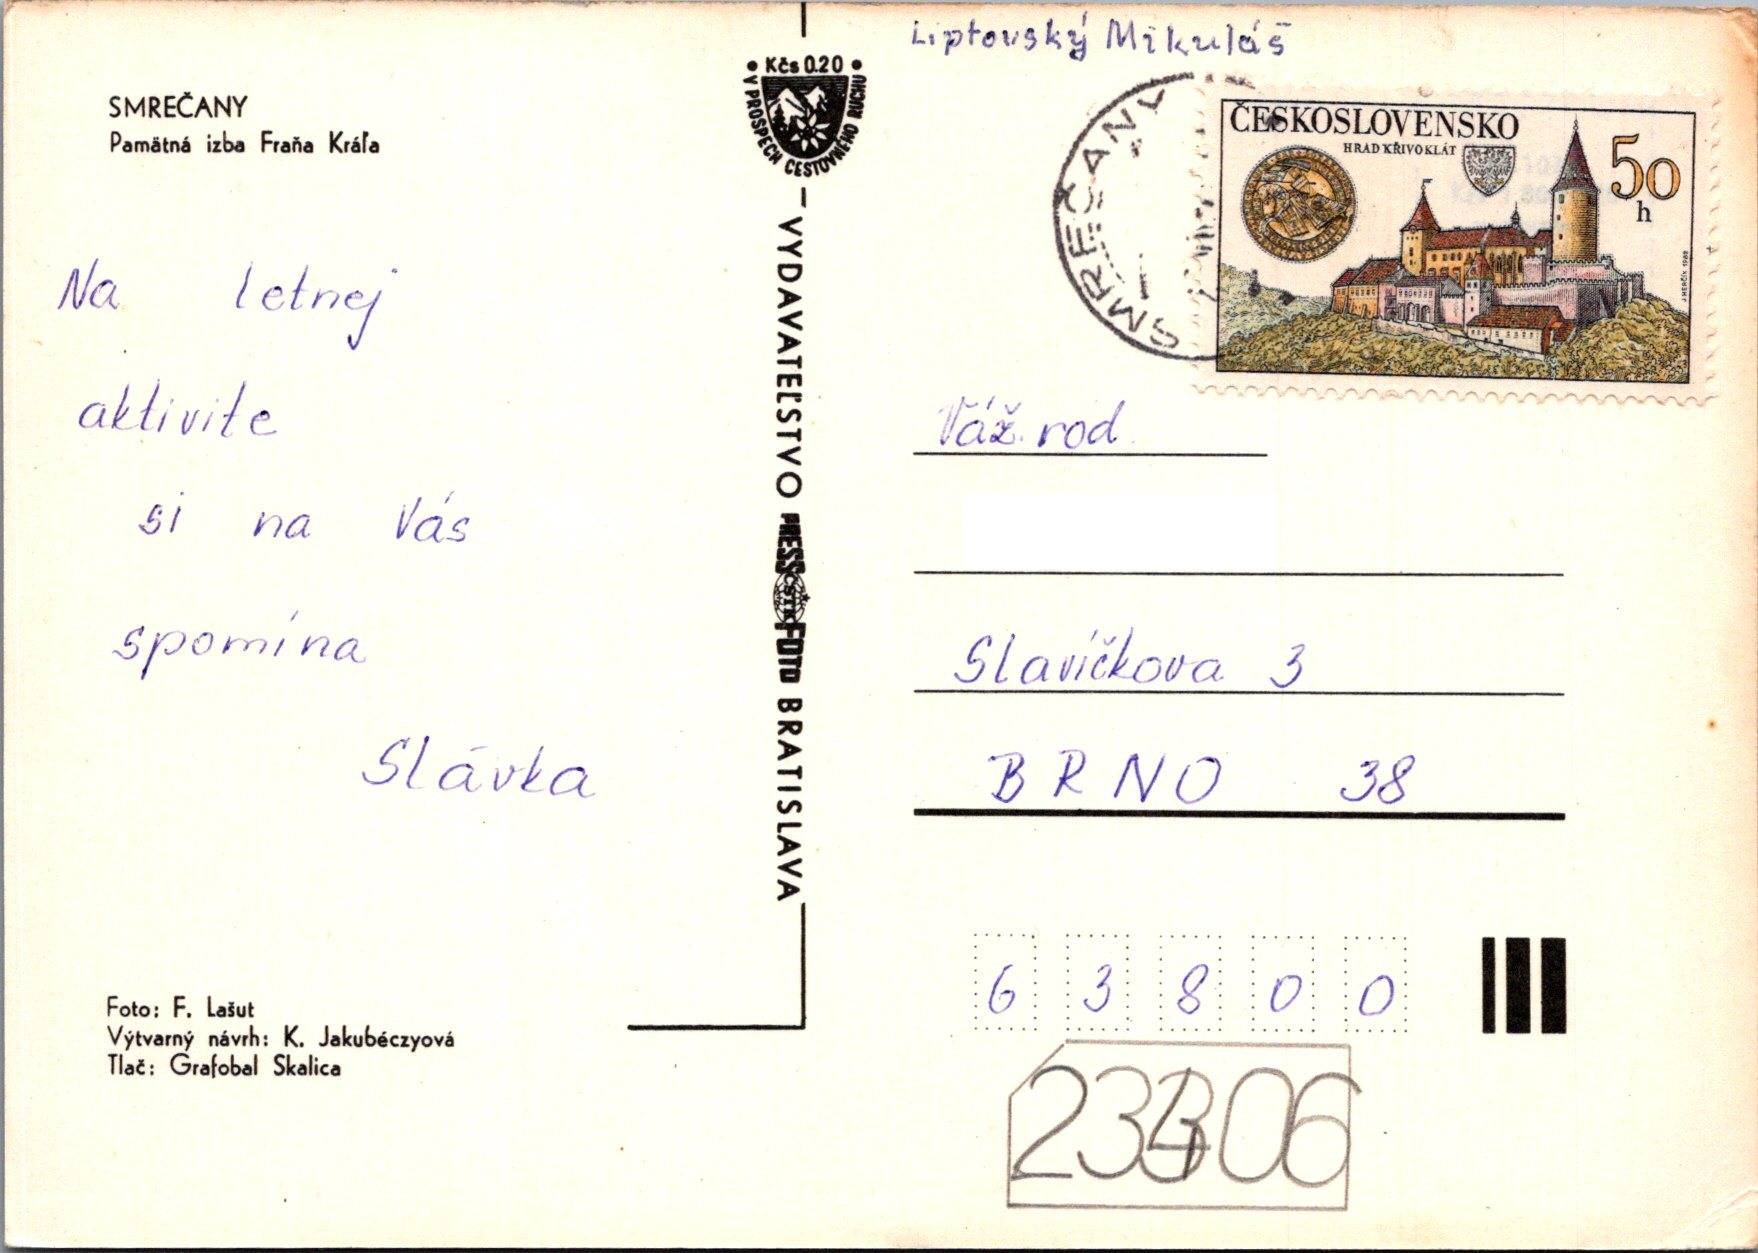 SMREČANY
Pamätná izba Fraňa Kráľa
Na letnej
aktivite
si na Vás
spomína
Slávka
Foto: F. Lašut
Výtvarný návrh: K. Jakubéczyová
Tlač: Grafobal Skalica
• Kčs 0.20 •
V PROSPECH CESTOVNÉHO RUCHU
VYDAVATEĽSTVO PRESSFOTO BRATISLAVA
ČSTK
Liptovský Mikuláš
SMREČANY
ČESKOSLOVENSKO
HRAD KŘIVOKLÁT
50
h
Váž. rod.
Slavíčkova 3
BRNO 38
6 3 8 0 0